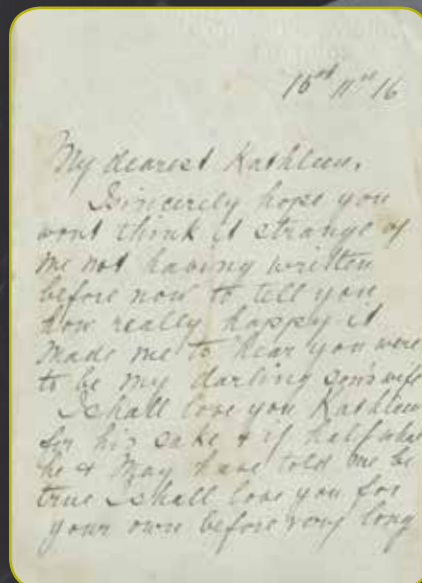 11 16
My dearest Kathleen,
I sincerely hope you
wont think it strange of
me not having written
before now to tell you
how really happy it
made me to hear you were
to be my darling son's wife
I shall love you Kathleen
for his sake & if half what
he & May have told me be
true I shall love you for
your own before very long